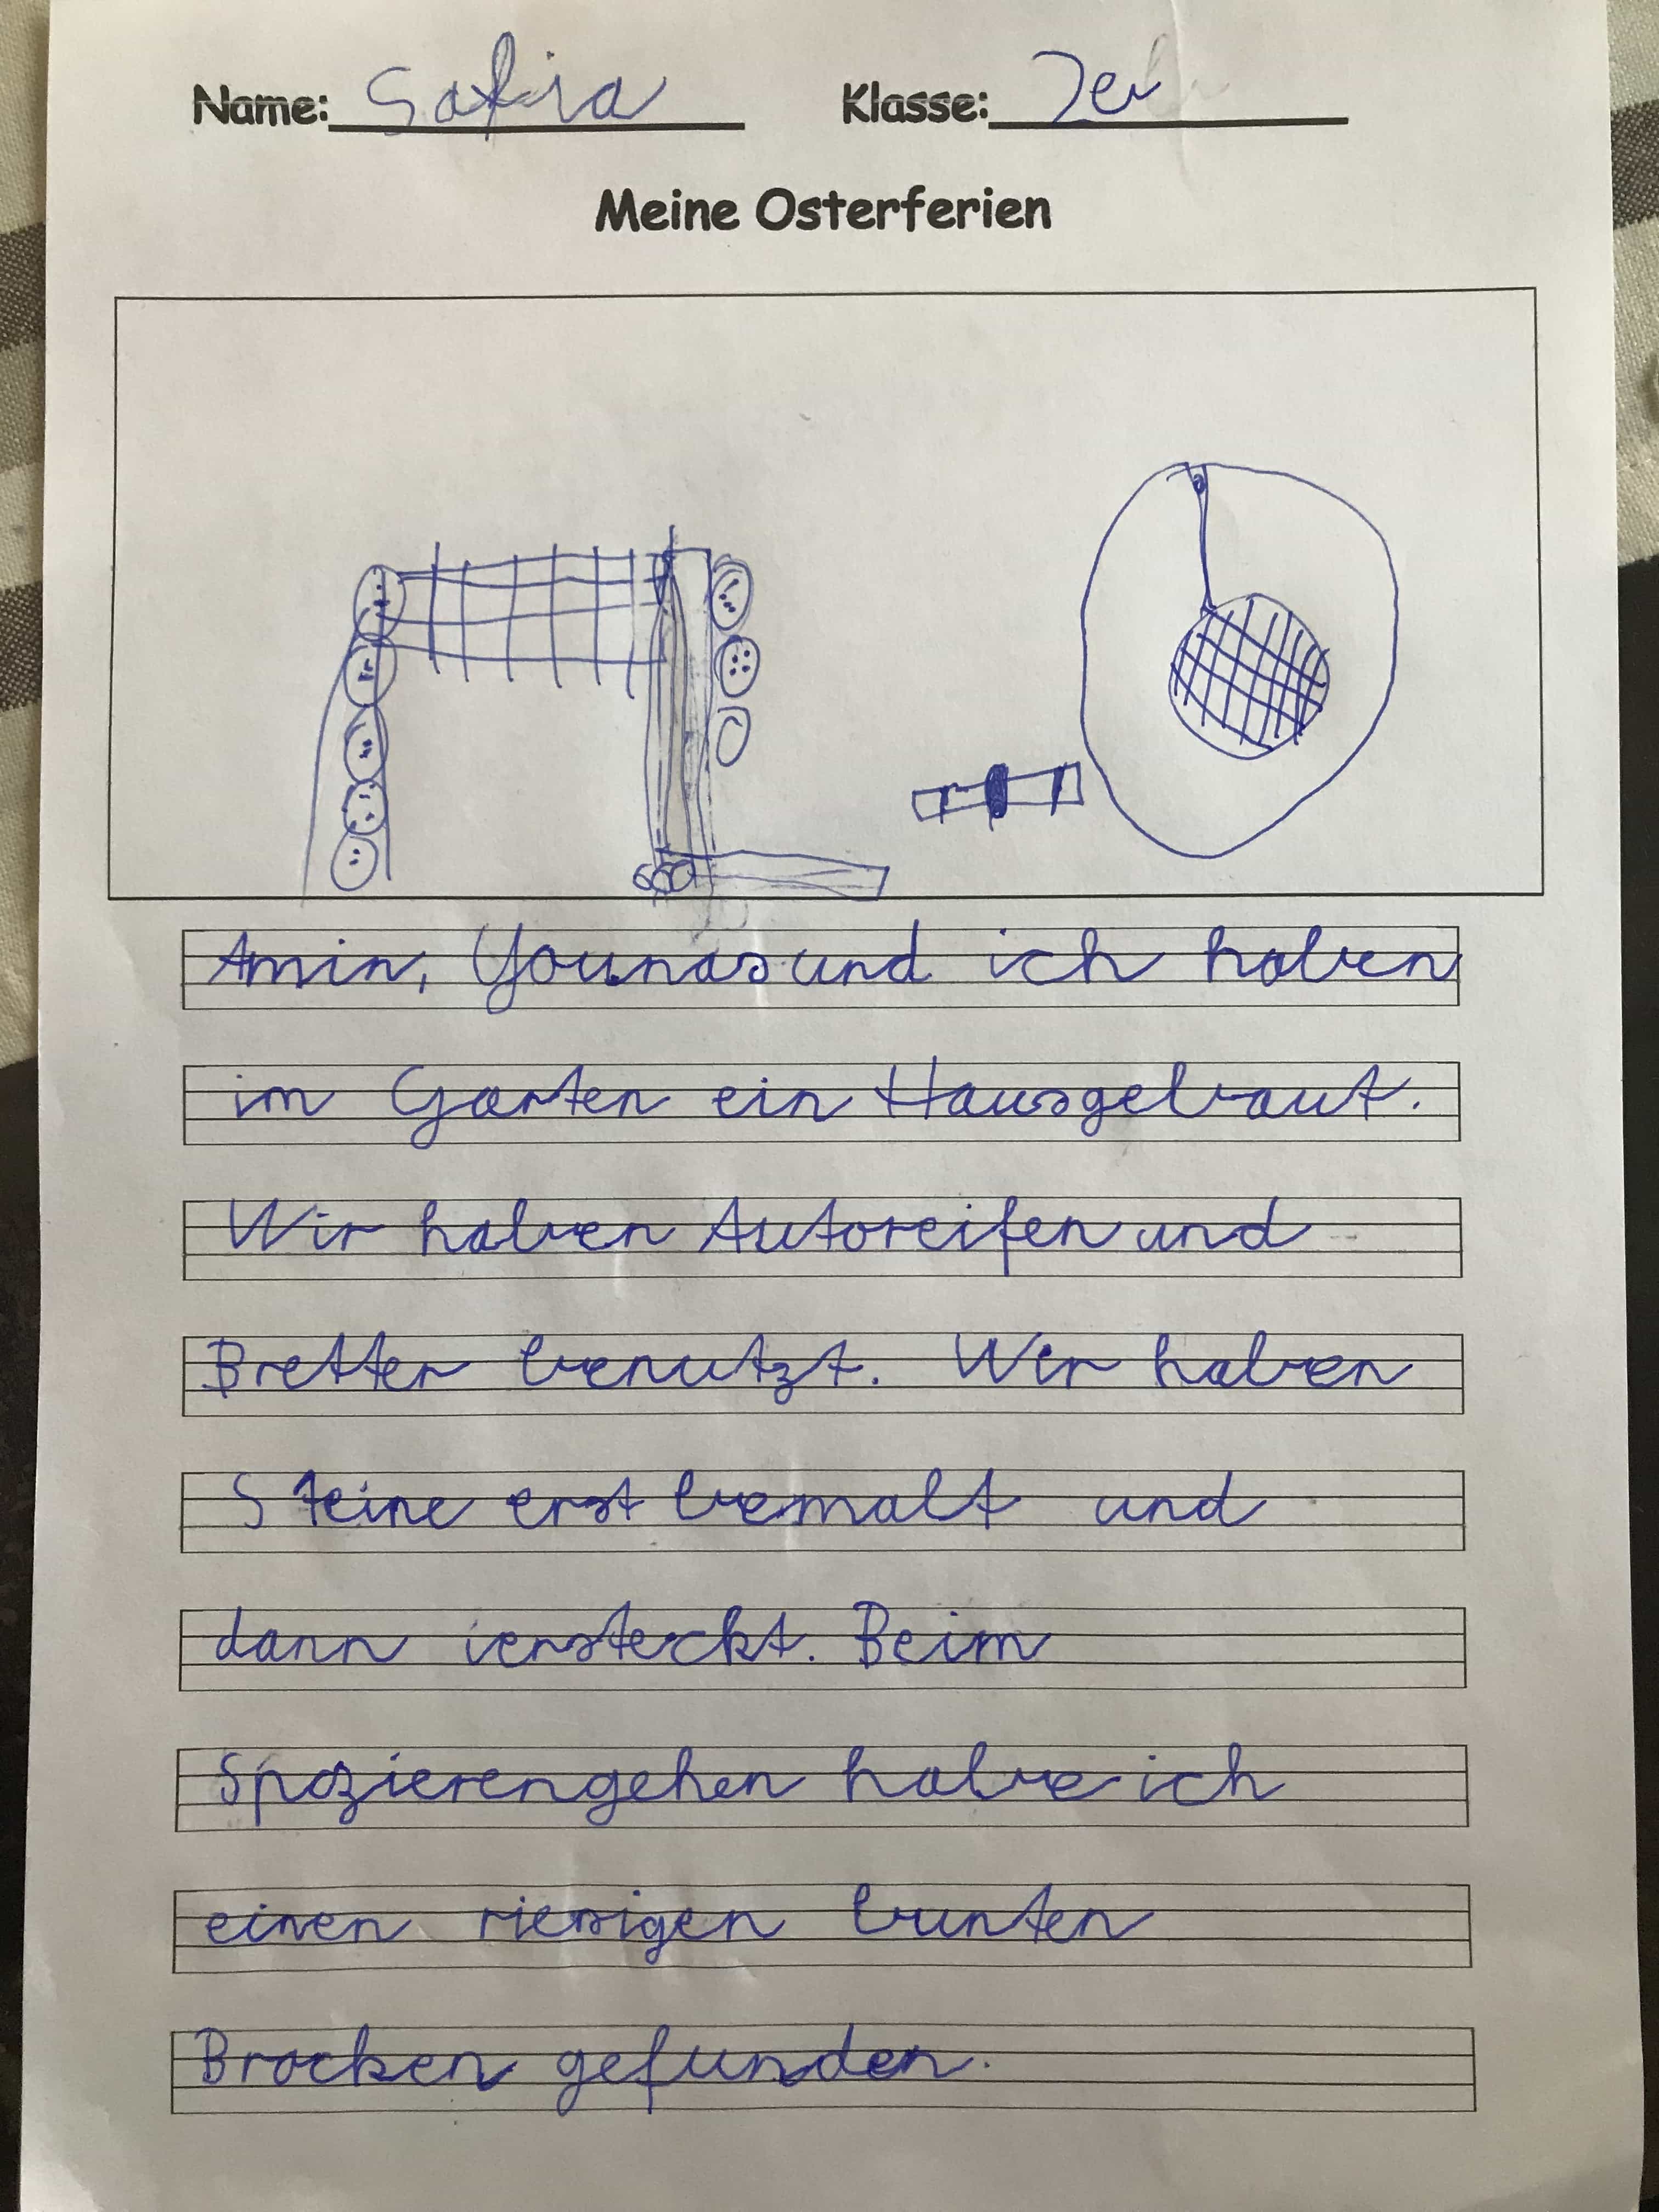 Name: Safira Klasse:
Meine Osterferien
Amin, Younas und ich haben
im Garten ein Hausgebaut.
Wir haben Autoreifen und
Bretter benutzt. Wir haben
Steine erst bemalt und
dann versteckt. Beim
Spazierengehen habe ich
einen riesigen bunten
Brocken gefunden.